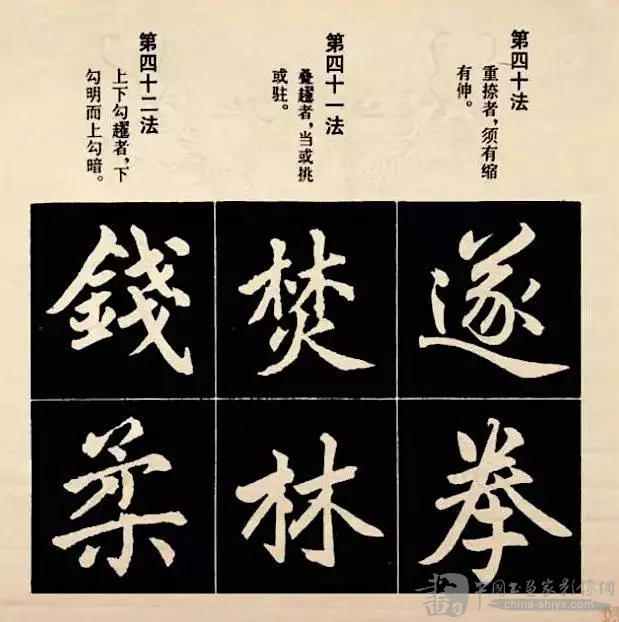 第四十法
重捺者，须有缩
有伸。
遂
拳
第四十一法
叠趯者，当或挑
或驻。
焚
林
第四十二法
上下勾趯者，下
勾明而上勾暗。
錢
柔
書
中国书画家影像網
china-shjyx.com